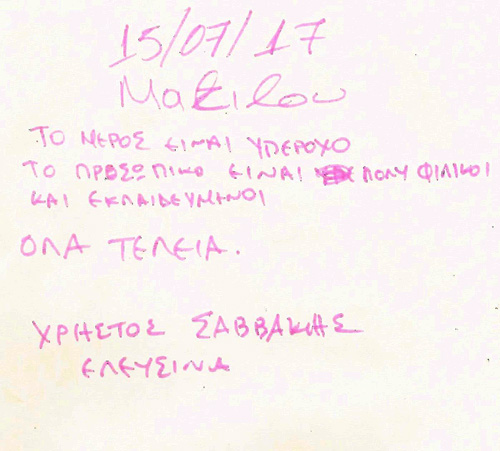 15/07/17
Μαξιλου
ΤΟ ΜΕΡΟΣ ΕΙΝΑΙ ΥΠΕΡΟΧΟ
ΤΟ ΠΡΟΣΩΠΙΚΟ ΕΙΝΑΙ ΠΟΛΥ ΦΙΛΙΚΟΙ
ΚΑΙ ΕΚΠΑΙΔΕΥΜΙΝΟΙ
ΟΛΑ ΤΕΛΕΙΑ.
ΧΡΗΣΤΟΣ ΣΑΒΒΑΚΗΣ
ΕΛΕΥΣΙΝΑ